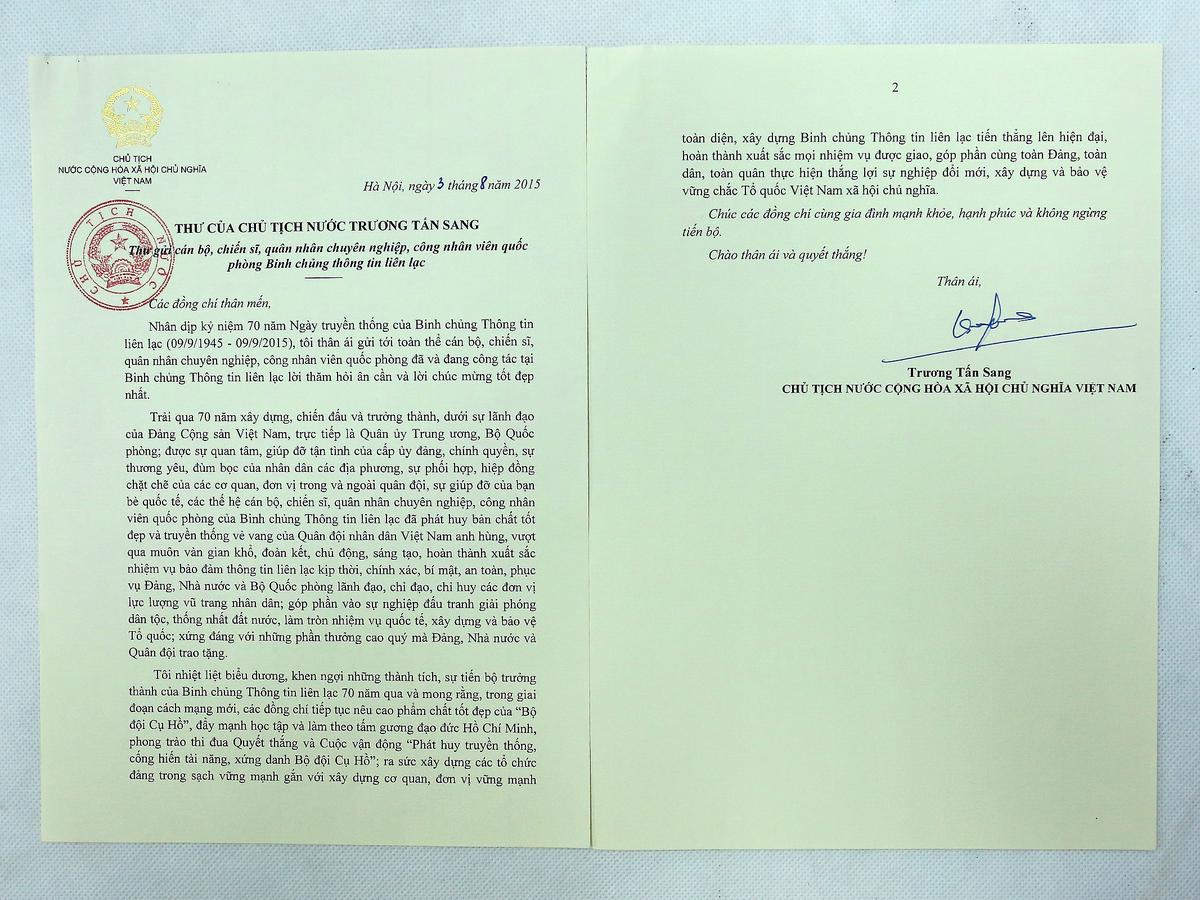 CHỦ TỊCH
NƯỚC CỘNG HÒA XÃ HỘI CHỦ NGHĨA
VIỆT NAM
Hà Nội, ngày 3 tháng 8 năm 2015
CHỦ TỊCH NƯỚC
THƯ CỦA CHỦ TỊCH NƯỚC TRƯƠNG TẤN SANG
Thư gửi cán bộ, chiến sĩ, quân nhân chuyên nghiệp, công nhân viên quốc
phòng Binh chủng thông tin liên lạc
Các đồng chí thân mến,
Nhân dịp kỷ niệm 70 năm Ngày truyền thống của Binh chủng Thông tin
liên lạc (09/9/1945 - 09/9/2015), tôi thân ái gửi tới toàn thể cán bộ, chiến sĩ,
quân nhân chuyên nghiệp, công nhân viên quốc phòng đã và đang công tác tại
Binh chủng Thông tin liên lạc lời thăm hỏi ân cần và lời chúc mừng tốt đẹp
nhất.
Trải qua 70 năm xây dựng, chiến đấu và trưởng thành, dưới sự lãnh đạo
của Đảng Cộng sản Việt Nam, trực tiếp là Quân ủy Trung ương, Bộ Quốc
phòng; được sự quan tâm, giúp đỡ tận tình của cấp ủy đảng, chính quyền, sự
thương yêu, đùm bọc của nhân dân các địa phương, sự phối hợp, hiệp đồng
chặt chẽ của các cơ quan, đơn vị trong và ngoài quân đội, sự giúp đỡ của bạn
bè quốc tế, các thế hệ cán bộ, chiến sĩ, quân nhân chuyên nghiệp, công nhân
viên quốc phòng của Binh chủng Thông tin liên lạc đã phát huy bản chất tốt
đẹp và truyền thống vẻ vang của Quân đội nhân dân Việt Nam anh hùng, vượt
qua muôn vàn gian khổ, đoàn kết, chủ động, sáng tạo, hoàn thành xuất sắc
nhiệm vụ bảo đảm thông tin liên lạc kịp thời, chính xác, bí mật, an toàn, phục
vụ Đảng, Nhà nước và Bộ Quốc phòng lãnh đạo, chỉ đạo, chỉ huy các đơn vị
lực lượng vũ trang nhân dân; góp phần vào sự nghiệp đấu tranh giải phóng
dân tộc, thống nhất đất nước, làm tròn nhiệm vụ quốc tế, xây dựng và bảo vệ
Tổ quốc; xứng đáng với những phần thưởng cao quý mà Đảng, Nhà nước và
Quân đội trao tặng.
Tôi nhiệt liệt biểu dương, khen ngợi những thành tích, sự tiến bộ trưởng
thành của Binh chủng Thông tin liên lạc 70 năm qua và mong rằng, trong giai
đoạn cách mạng mới, các đồng chí tiếp tục nêu cao phẩm chất tốt đẹp của “Bộ
đội Cụ Hồ”, đẩy mạnh học tập và làm theo tấm gương đạo đức Hồ Chí Minh,
phong trào thi đua Quyết thắng và Cuộc vận động “Phát huy truyền thống,
cống hiến tài năng, xứng danh Bộ đội Cụ Hồ”; ra sức xây dựng các tổ chức
đảng trong sạch vững mạnh gắn với xây dựng cơ quan, đơn vị vững mạnh
2
toàn diện, xây dựng Binh chủng Thông tin liên lạc tiến thẳng lên hiện đại,
hoàn thành xuất sắc mọi nhiệm vụ được giao, góp phần cùng toàn Đảng, toàn
dân, toàn quân thực hiện thắng lợi sự nghiệp đổi mới, xây dựng và bảo vệ
vững chắc Tổ quốc Việt Nam xã hội chủ nghĩa.
Chúc các đồng chí cùng gia đình mạnh khỏe, hạnh phúc và không ngừng
tiến bộ.
Chào thân ái và quyết thắng!
Thân ái,
Trương Tấn Sang
CHỦ TỊCH NƯỚC CỘNG HÒA XÃ HỘI CHỦ NGHĨA VIỆT NAM